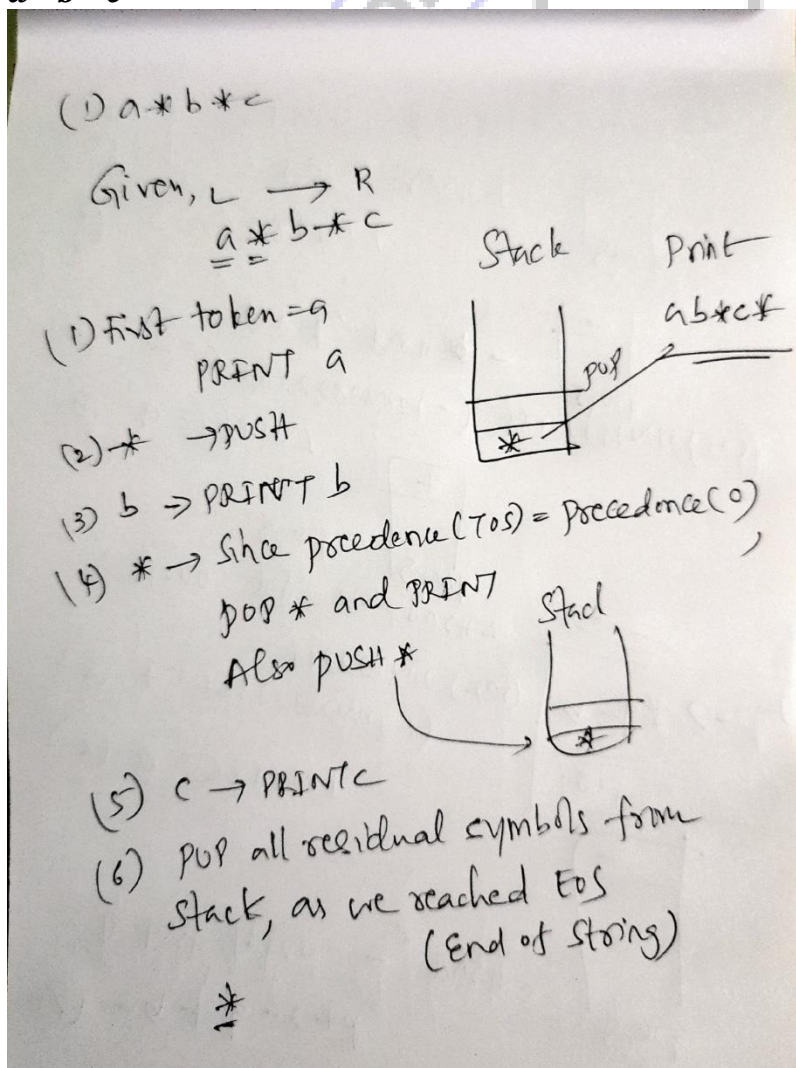 (1) a * b * c
Given, L → R
a * b * c
Stack
Print
(1) First token = a
ab*c*
PRINT a
POP
(2) * → PUSH
*
(3) b → PRINT b
(4) * → Since precedence (TOS) = precedence (0),
POP * and PRINT
Stack
Also PUSH *
*
(5) c → PRINT c
(6) POP all residual symbols from
stack, as we reached EOS
(End of String)
*